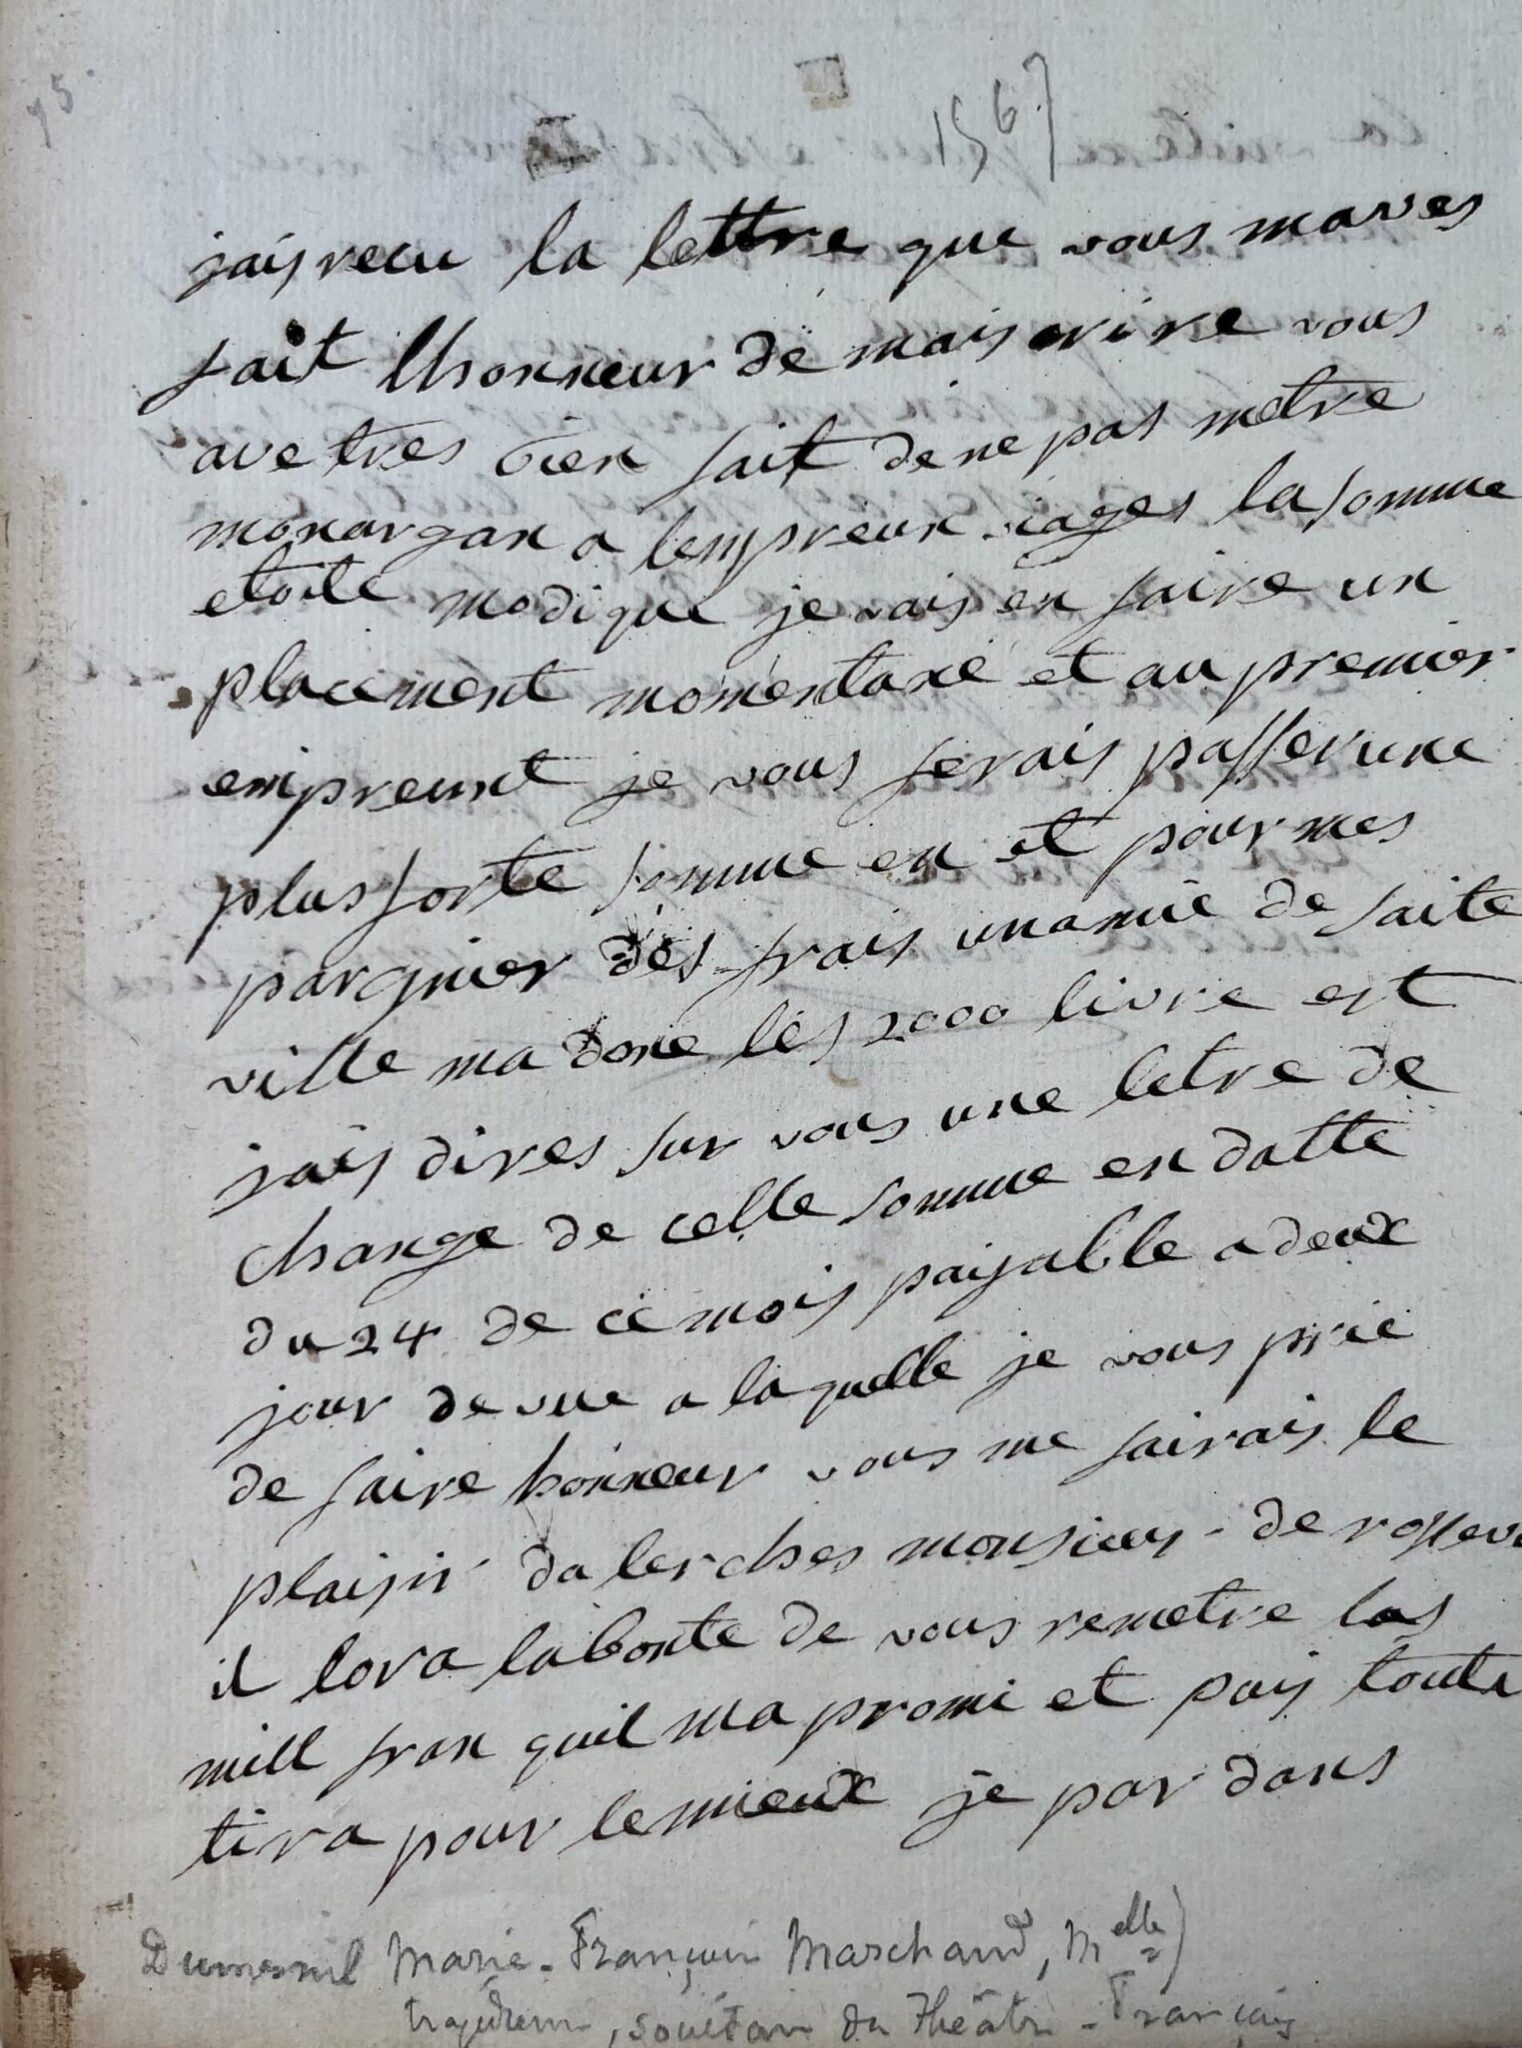 95
1567
jais recu la lettre que vous maves
fait lhonneur de mais crire vous
ave tres bien fait de ne pas metre
monargan a lempreun viages la somme
etoite modique je vais en faire un
placiment momentané et au premier
empreunt je vous ferais passer une
plus forte somme en et pour mes
pargnier des frais un amie de saite
ville ma done les 2000 livre est
jais dires sur vous une letre de
change de celle somme en datte
du 24 de ce mois paijable a deux
jour de vue a laquelle je vous prie
de faire honneur vous me fairais le
plaisir da ler ches monsieur de
il lora la bonte de vous remetre las
mill fran quil ma promi et puis toute
tira pour lemieux je par dans
Dumesnil Marie-Françoise Marchand, Melle)
tragédienne, sociétaire du Théâtre-Français